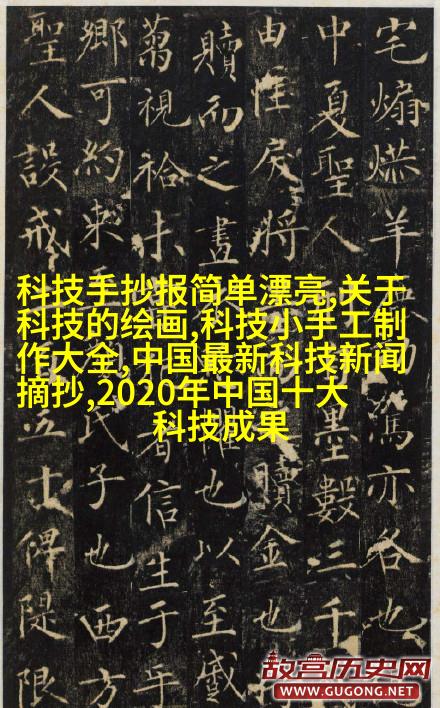 宅煽羊亦各也
中夏聖人墨數三千
由性戾將贖金也
贖而之畫也以至戚
視者信生于年
鄉可約束氏子也西方
聖人設戒五士俾隄限
科技手抄报简单漂亮,关于
科技的绘画,科技小手工制
作大全,中国最新科技新闻
摘抄,2020年中国十大
科技成果
故宫历史网
WWW.GUGONG.NET